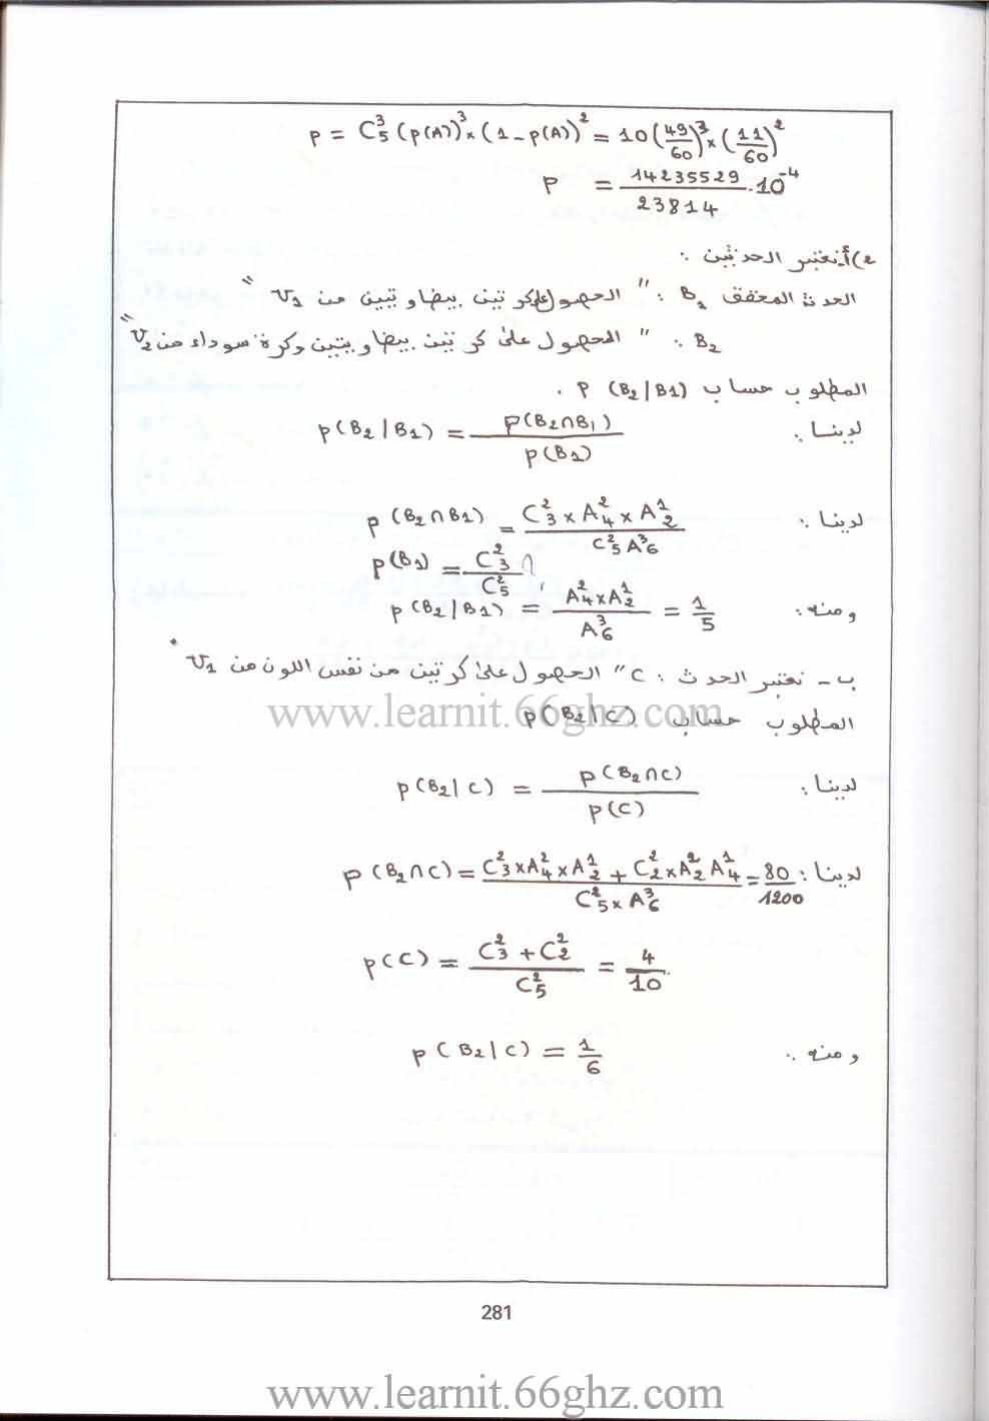 p = C₅³ (p(A))³ × (1 - p(A))² = 10 (49/60)³ × (11/60)²
P = 14235529/23814 · 10⁻⁴
2) أ. نعتبر الحدثين :
الحدث المحقق B₁ : " الحصول على كرتين بيضاوتيين من U₁ "
B₂ : " الحصول على كرتين بيضاويتين وكرة سوداء من U₂ "
المطلوب حساب p (B₂ | B1) .
لدينا : p(B₂ | B₁) = p(B₂∩B₁) / p(B₁)
لدينا : p (B₂∩B₁) = C₃² × A₄² × A₂¹ / C₅² A₆³
p(B₁) = C₃² / C₅²
ومنه : p (B₂ | B₁) = A₄² × A₂¹ / A₆³ = 1/5
ب - نعتبر الحدث C : " الحصول على كرتين من نفس اللون من U₁
المطلوب حساب p(B₂ | C)
www.learnit.66ghz.com
لدينا : p(B₂ | C) = p(B₂∩C) / p(C)
لدينا : p (B₂∩C) = C₃² × A₄² × A₂¹ + C₂² × A₂² A₄¹ / C₅² × A₆³ = 80/1200
p(C) = C₃² + C₂² / C₅² = 4/10
ومنه : p (B₂ | C) = 1/6
281
www.learnit.66ghz.com